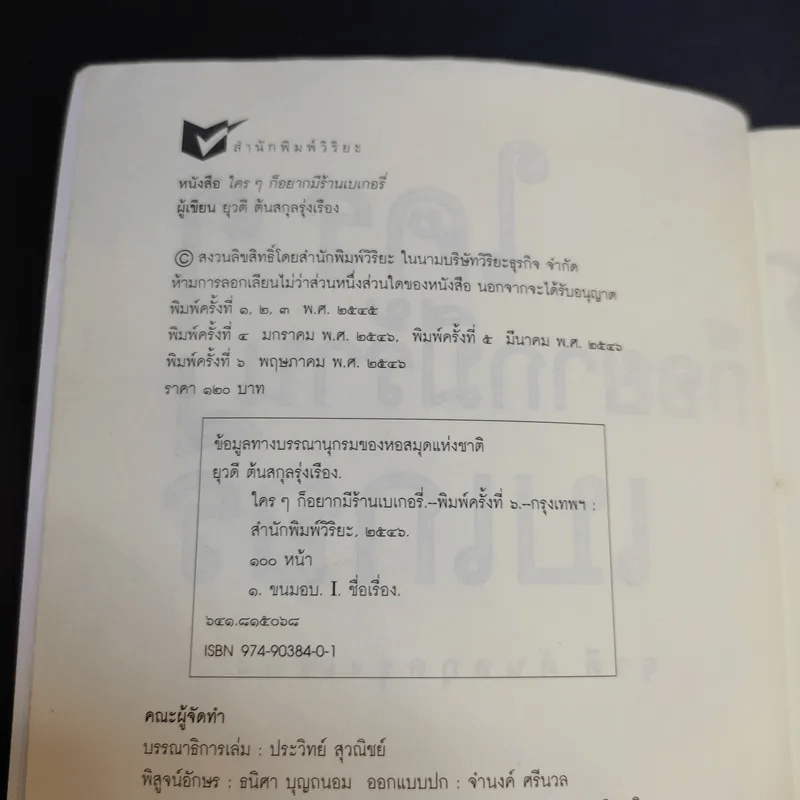 สำนักพิมพ์วิริยะ
หนังสือ ใคร ๆ ก็อยากมีร้านเบเกอรี่
ผู้เขียน ยุวดี ต้นสกุลรุ่งเรือง
© สงวนลิขสิทธิ์โดยสำนักพิมพ์วิริยะ ในนามบริษัทวิริยะธุรกิจ จำกัด
ห้ามการลอกเลียนไม่ว่าส่วนหนึ่งส่วนใดของหนังสือ นอกจากจะได้รับอนุญาต
พิมพ์ครั้งที่ ๑, ๒, ๓ พ.ศ. ๒๕๔๕
พิมพ์ครั้งที่ ๔ มกราคม พ.ศ. ๒๕๔๖, พิมพ์ครั้งที่ ๕ มีนาคม พ.ศ. ๒๕๔๖
พิมพ์ครั้งที่ ๖ พฤษภาคม พ.ศ. ๒๕๔๖
ราคา ๑๒๐ บาท
ข้อมูลทางบรรณานุกรมของหอสมุดแห่งชาติ
ยุวดี ต้นสกุลรุ่งเรือง.
ใคร ๆ ก็อยากมีร้านเบเกอรี่.--พิมพ์ครั้งที่ ๖.--กรุงเทพฯ :
สำนักพิมพ์วิริยะ, ๒๕๔๖.
๑๐๐ หน้า
๑. ขนมอบ. I. ชื่อเรื่อง.
๖๔๑.๘๑๕๐๖๘
ISBN 974-90384-0-1
คณะผู้จัดทำ
บรรณาธิการเล่ม : ประวิทย์ สุวณิชย์
พิสูจน์อักษร : ธนิศา บุญถนอม ออกแบบปก : จำนงค์ ศรีนวล